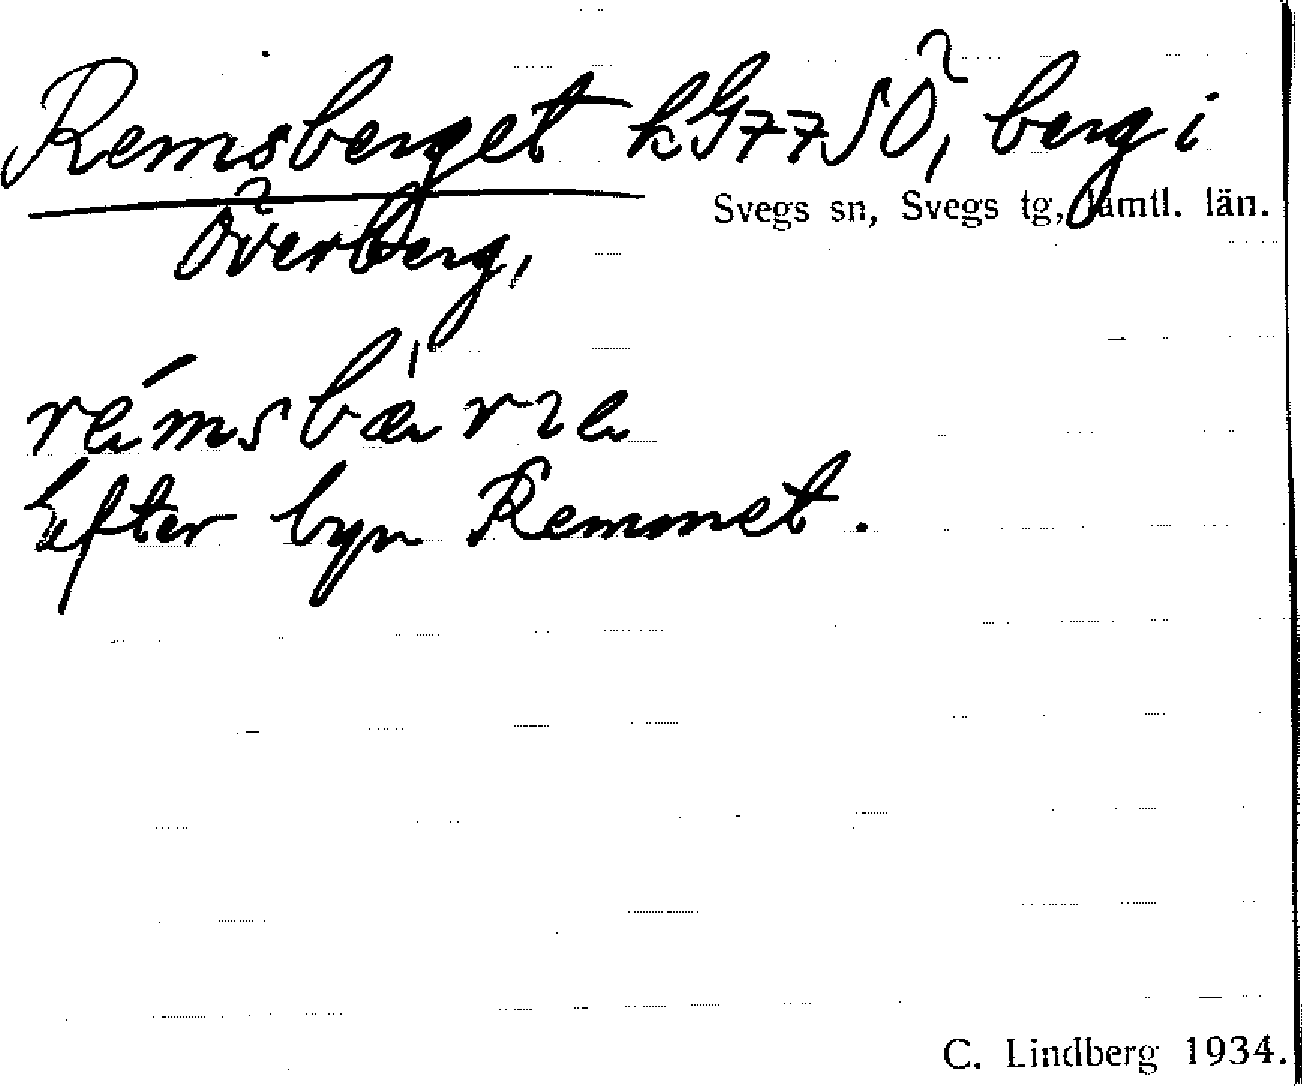 Remsberget kG77SÖ, berg i
Svegs sn, Svegs tg, Jämtl. län.
Överberg,
Efter byn Remmet.
C. Lindberg 1934.